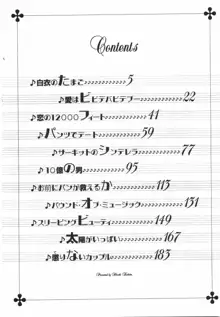 Contents
♪白衣のたまご…………5
♪愛はビビデバビデブー………22
♪恋の12000フィート………41
♪パンツでデート………59
♪サーキットのシンデレラ………77
♪10億の男………95
♪お前にパンが救えるか………113
♪バウンド・オブ・ミュージック………131
♪スリーピングビューティ………149
♪太陽がいっぱい………167
♪重りないカップル………183